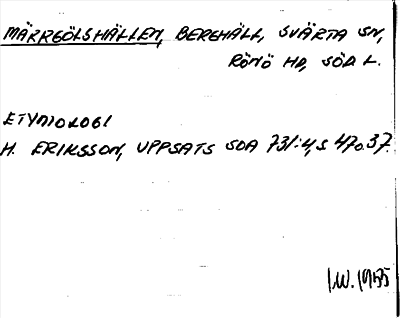 MÄRRGÖLSHÄLLEN, BERGHÄLL, SVÄRTA SN,
RÖNÖ HD, SÖD L.
ETYMOLOGI
H. ERIKSSON, UPPSATS SOA 731:4, S 47o37.
I.W. 1955